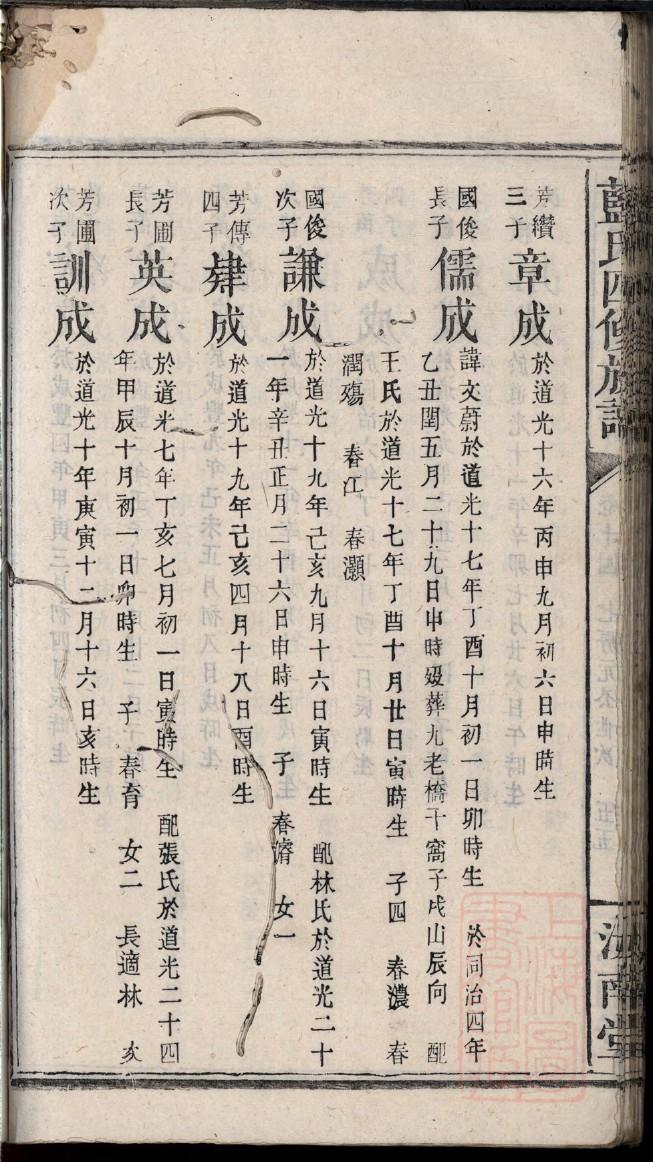 藍氏四修族譜
汝南堂
芳纘
三子
章成
於道光十六年丙申九月初六日申時生
國俊
長子
儒成
諱文蔚於道光十七年丁酉十月初一日卯時生 於同治四年
乙丑閏五月二十九日申時歿葬九老橋干窩子戌山辰向 配
王氏於道光十七年丁酉十月廿日寅時生 子四 春濃 春
潤殤 春江 春灝
國俊
次子
謙成
於道光十九年己亥九月十六日寅時生 配林氏於道光二十
一年辛丑正月二十六日申時生 子 春濱 女一
芳傳
四子
肆成
於道光十九年己亥四月十八日酉時生
芳圃
長子
英成
於道光七年丁亥七月初一日寅時生 配張氏於道光二十四
年甲辰十月初一日卯時生 子 春育 女二 長適林 亥
芳圃
次子
訓成
於道光十年庚寅十二月十六日亥時生